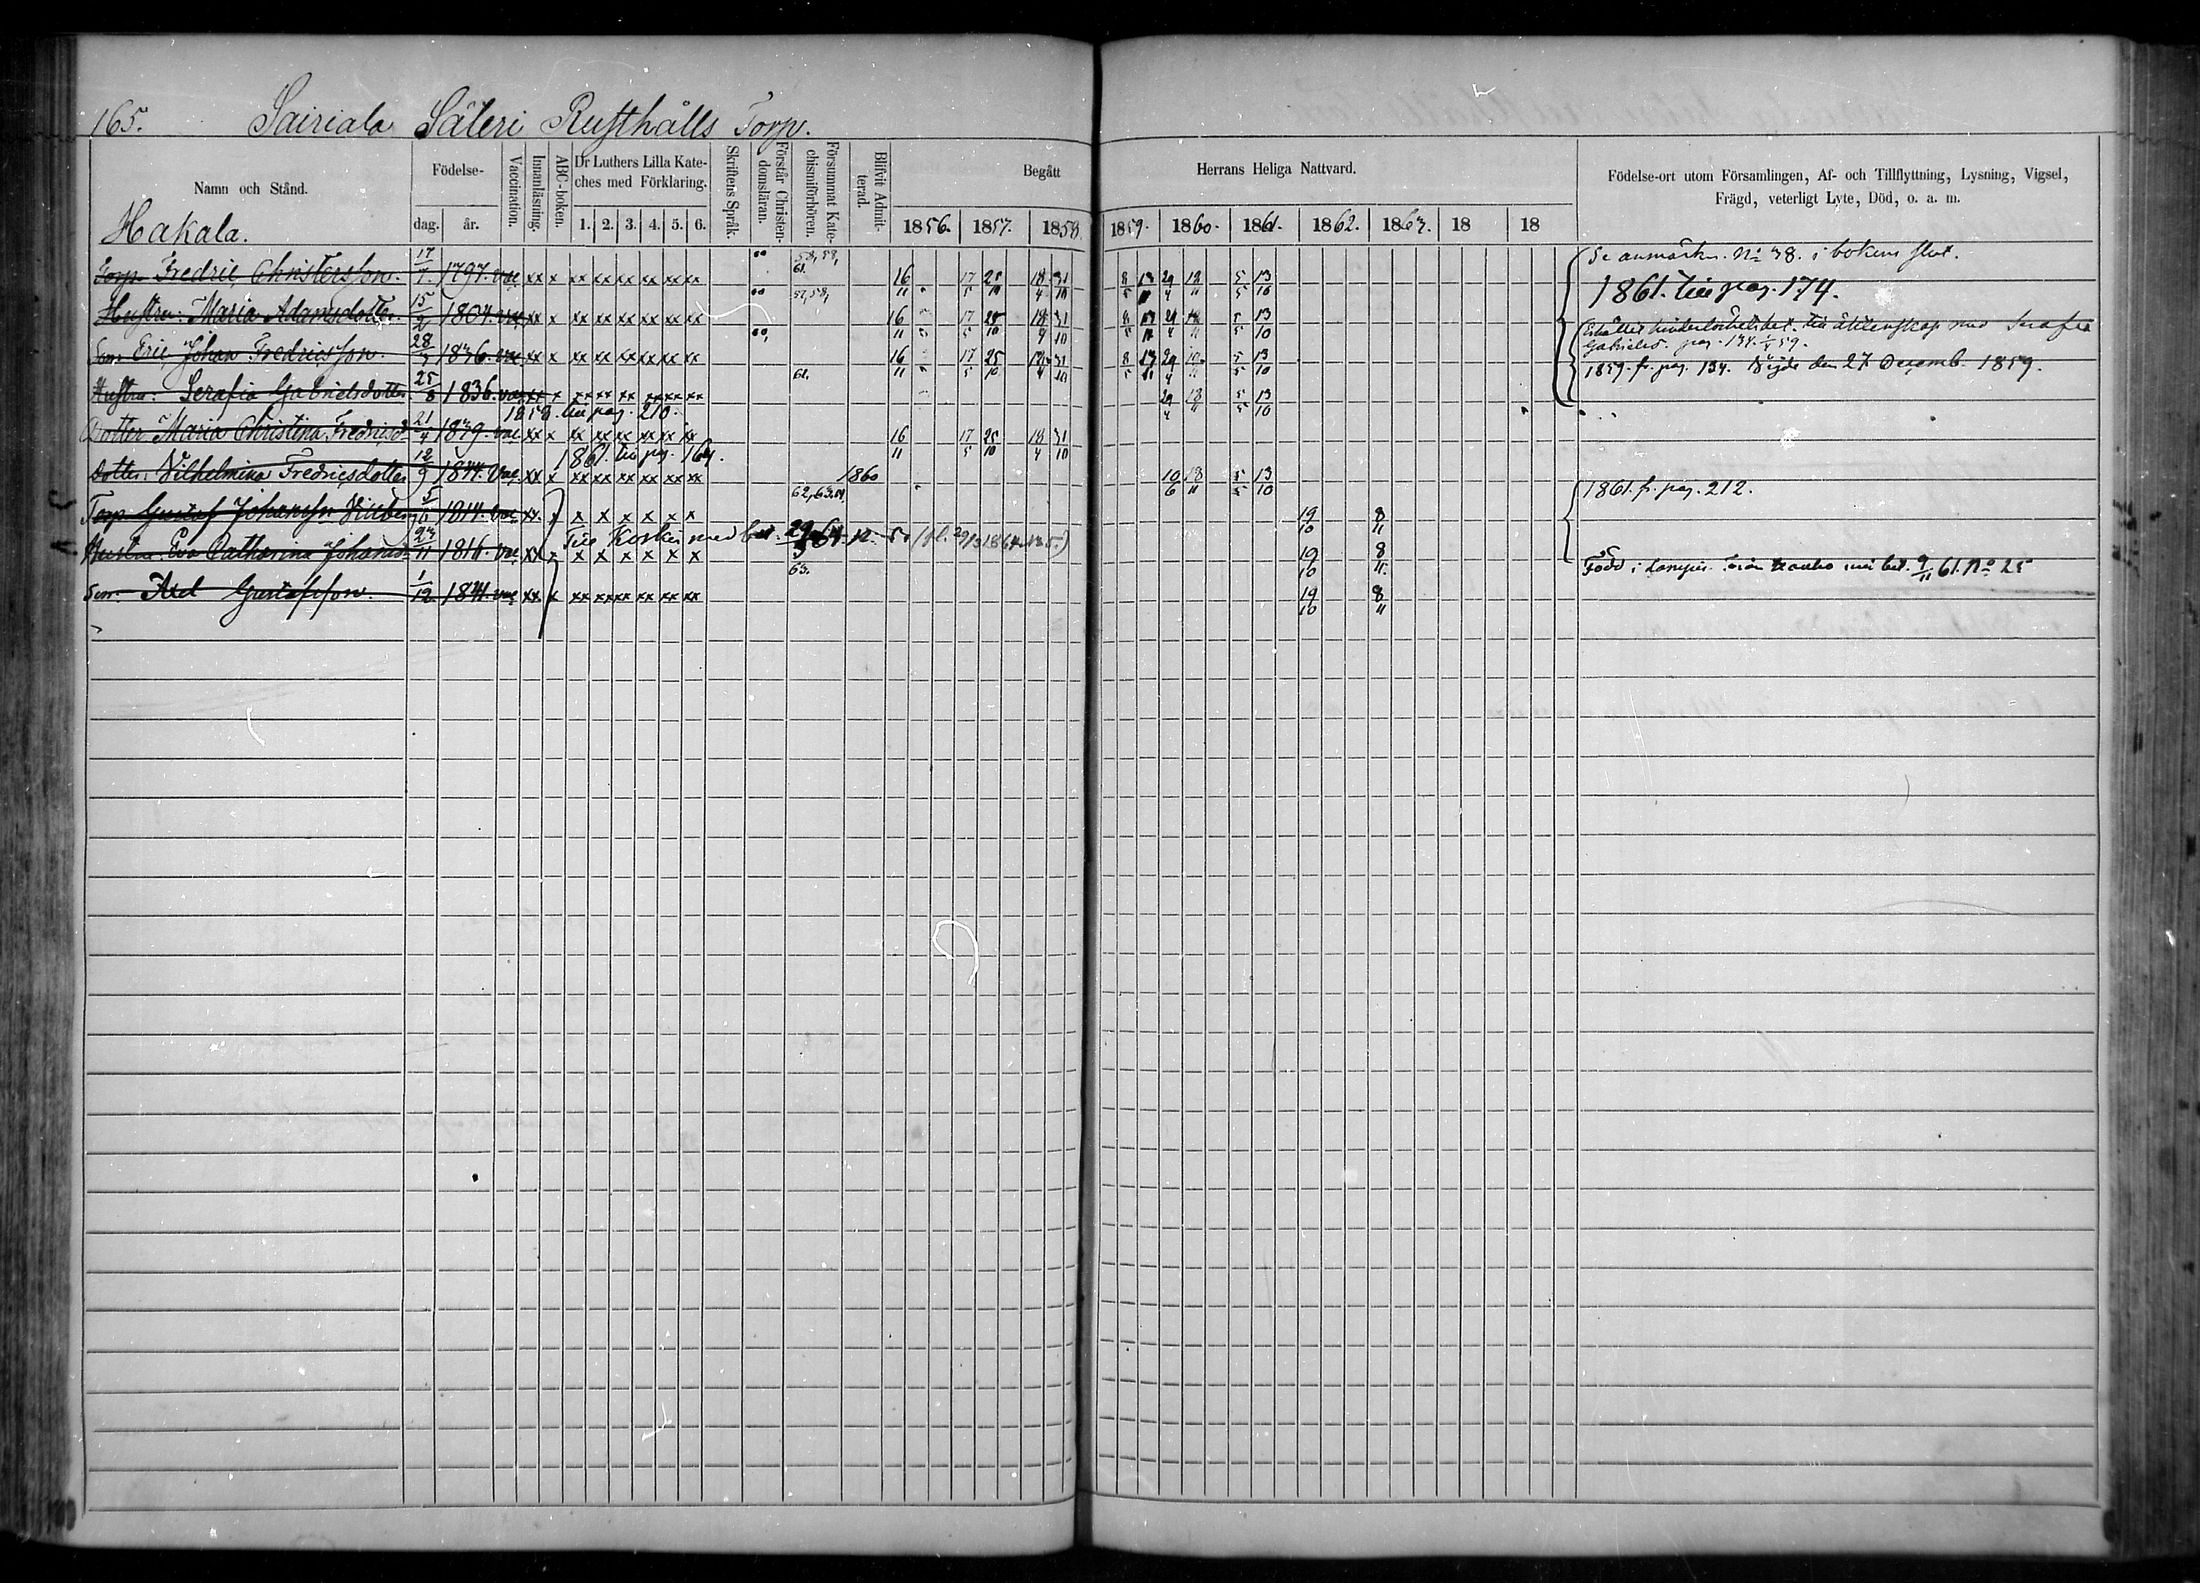 165. Sairiala Säteri Rusthålls Torp.
Namn och Stånd.
Födelse-
dag. år.
Vaccination.
Innanläsning.
ABC-boken.
Dr Luthers Lilla Kate-
ches med Förklaring.
1. 2. 3. 4. 5. 6.
Skriftens Språk.
Förstår Christen-
domsläran.
Försummat Kate-
chismiförhören.
Blifvit Admit-
terad.
Begått Herrans Heliga Nattvard.
1856. 1857. 1858. 1859. 1860. 1861. 1862. 1863. 18 18
Födelse-ort utom Församlingen, Af- och Tillflyttning, Lysning, Vigsel,
Frägd, veterligt Lyte, Död, o. a. m.
Hakala.
Torp. Fredric Christersson. 17/7. 1797. vac xx x xx xx xx xx xx xx 58, 61. 16/11 17/5 25/10 18/4 31/10 8/5 13/11 29/4 18/11 5/5 13/10 Se anmärkn. No 38. i bokens slut.
1861. till pag. 174.
Hustru: Maria Adamsdotter 15/2 1804. vac xx x xx xx xx xx xx xx 57, 58, 16/11 17/5 25/10 18/4 31/10 8/5 13/11 29/4 18/11 5/5 13/10
Son: Eric Johan Fredricsson. 28/3 1836. vac xx x xx xx xx xx xx xx 16/11 17/5 25/10 18/4 31/10 8/5 13/11 29/4 18/11 5/5 13/10 Erhållit hinderlöshetsbet. till äktenskap med Serafia
Gabrielsd. pag. 134. 59.
Hustru: Serafia Gabrielsdotter 25/8 1836. vac xx x xx xx xx xx xx xx 61. 29/4 18/11 5/5 13/10 1859. fr. pag. 134. Vigde den 27 Decemb. 1859.
1858. till pag. 210.
Dotter Maria Christina Fredricsd. 21/4 1839. vac xx x xx xx xx xx xx xx 16/11 17/5 25/10 18/4 31/10
1861. till pag. 164.
Dotter: Vilhelmina Fredricsdotter 12/9 1844. vac xx x xx xx xx xx xx xx 1860 10/6 18/11 5/5 13/10
Torp. Gustaf Johansson 1814. vac xx. x x x x x x x 62, 63. 19/10 8/11 1861. fr. pag. 212.
Till Koskis med bet. 29/3 64. N. 5. (fl. 29/3 1864. No 5.)
Hustru: Eva Catharina Johansd. 24/11 1816. vac xx x x x x x x x 19/10 8/11
Son: Axel Gustafsson. 1/12 1841. vac xx x xx xx xx xx xx xx 63. 19/10 8/11 Född i från med bet. 9/11 61. No 25